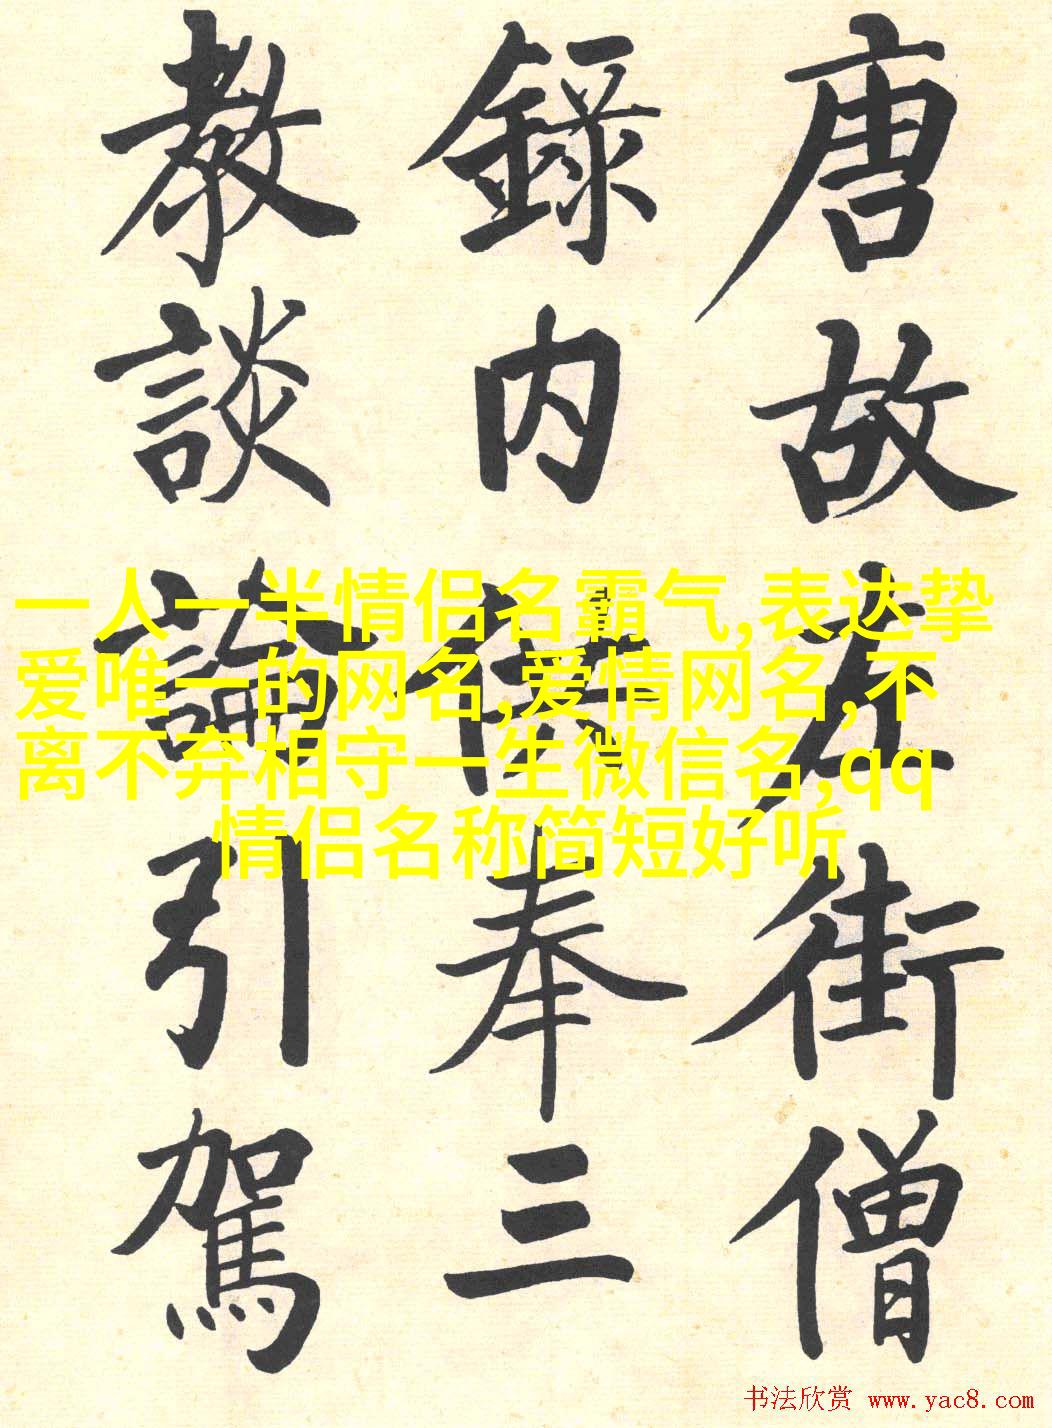 唐故左街僧
錄内供奉三
教談論引駕
一人一半情侣名霸气,表达挚
爱唯一的网名,爱情网名,不
离不弃相守一生微信名,qq
情侣名称简短好听
书法欣赏 www.yac8.com